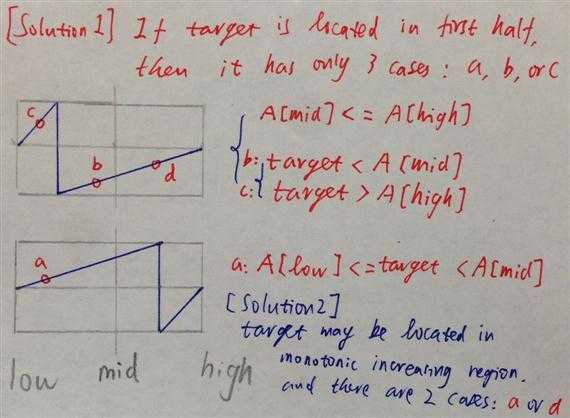 [Solution 1] If target is located in first half,
then it has only 3 cases: a, b, or c
c
A[mid] <= A[high]
b
d
b: target < A[mid]
c: target > A[high]
a
a: A[low] <= target < A[mid]
[Solution2]
target may be located in
monotonic increasing region.
and there are 2 cases: a or d
low mid high